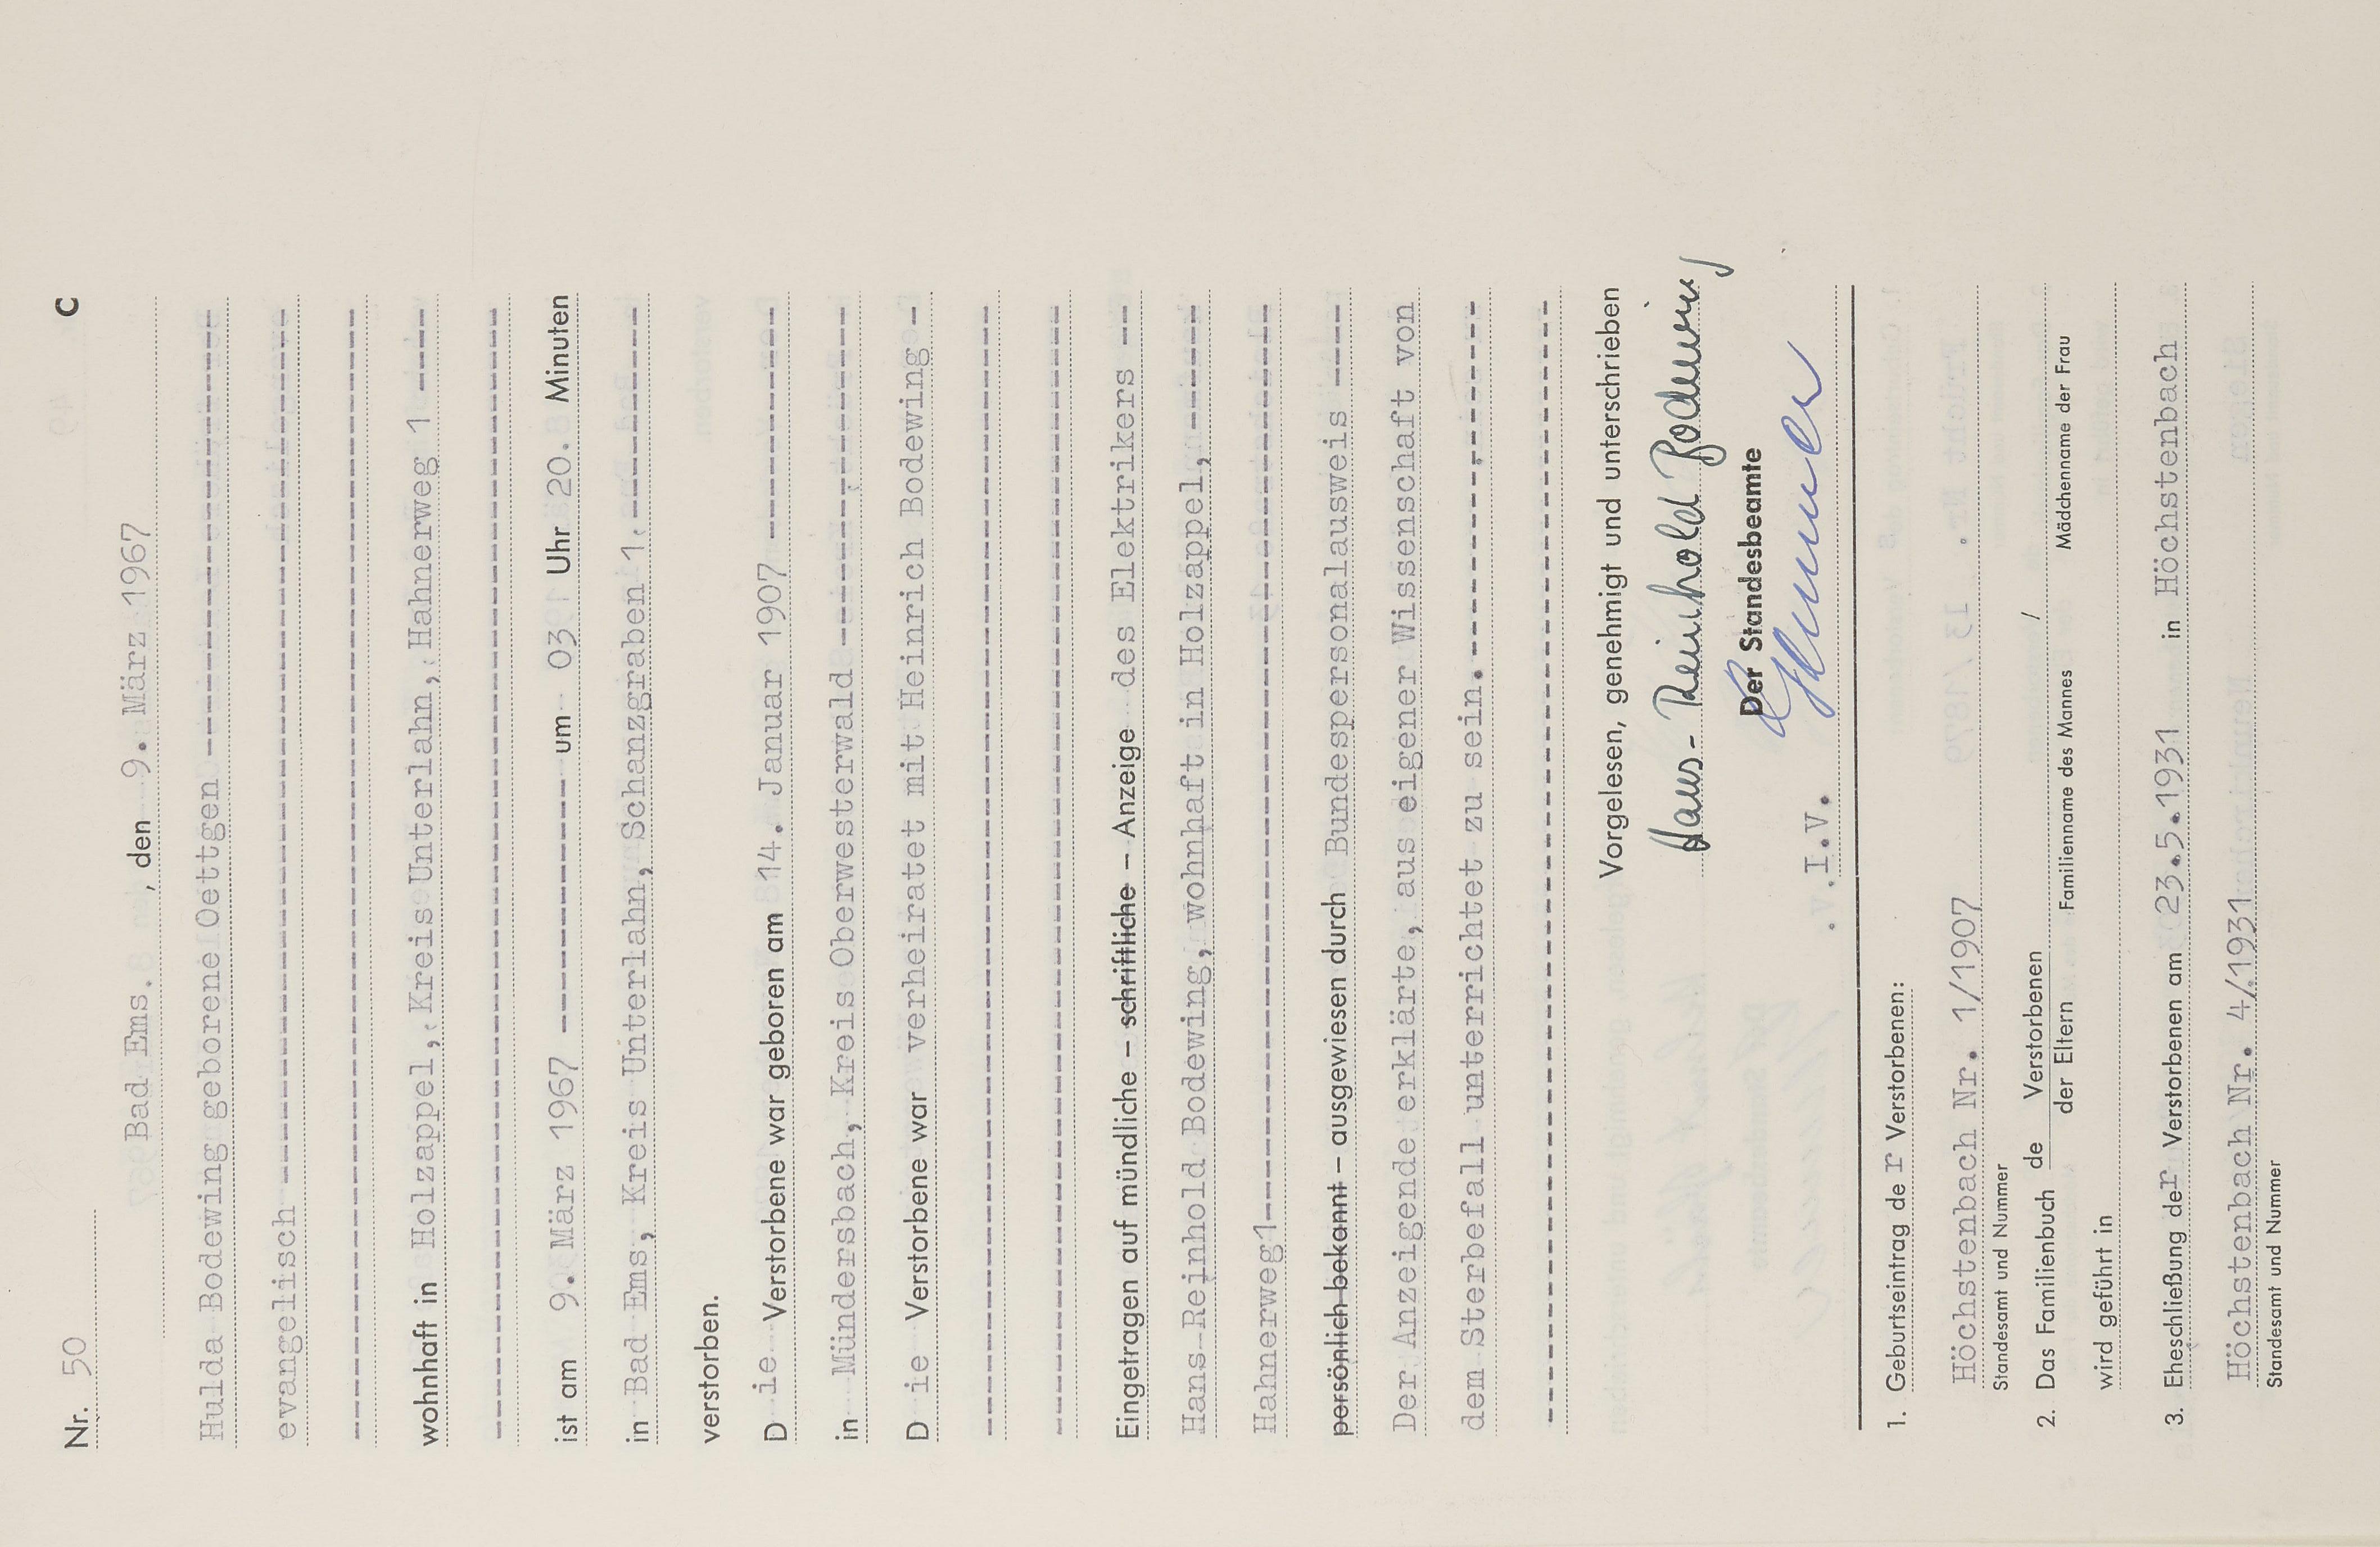 Nr. 50 C
Bad Ems. , den 9. März 1967
Hulda Bodewing geborene Oettgen ----------
evangelisch ----------
----------
wohnhaft in Holzappel, Kreis Unterlahn, Hahnerweg 1 ----
----------
ist am 9. März 1967 ---------- um 03 Uhr 20. Minuten
in Bad Ems, Kreis Unterlahn, Schanzgraben 1. ------
verstorben.
D ie Verstorbene war geboren am 14. Januar 1907 ----------
in Mündersbach, Kreis Oberwesterwald ----------
D ie Verstorbene war verheiratet mit Heinrich Bodewing -
----------
----------
Eingetragen auf mündliche – schriftliche – Anzeige des Elektrikers --
Hans-Reinhold Bodewing, wohnhaft in Holzappel, -----
Hahnerweg 1----------
persönlich bekannt – ausgewiesen durch Bundespersonalausweis ----
Der Anzeigende erklärte, aus eigener Wissenschaft von
dem Sterbefall unterrichtet zu sein. ----------
----------
Vorgelesen, genehmigt und unterschrieben
Hans-Reinhold Bodewing
Der Standesbeamte
I.V.
1. Geburtseintrag de r Verstorbenen:
Höchstenbach Nr. 1/1907
Standesamt und Nummer
2. Das Familienbuch de Verstorbenen /
der Eltern Familienname des Mannes Mädchenname der Frau
wird geführt in
3. Eheschließung der Verstorbenen am 23.5.1931 in Höchstenbach
Höchstenbach Nr. 4/1931
Standesamt und Nummer